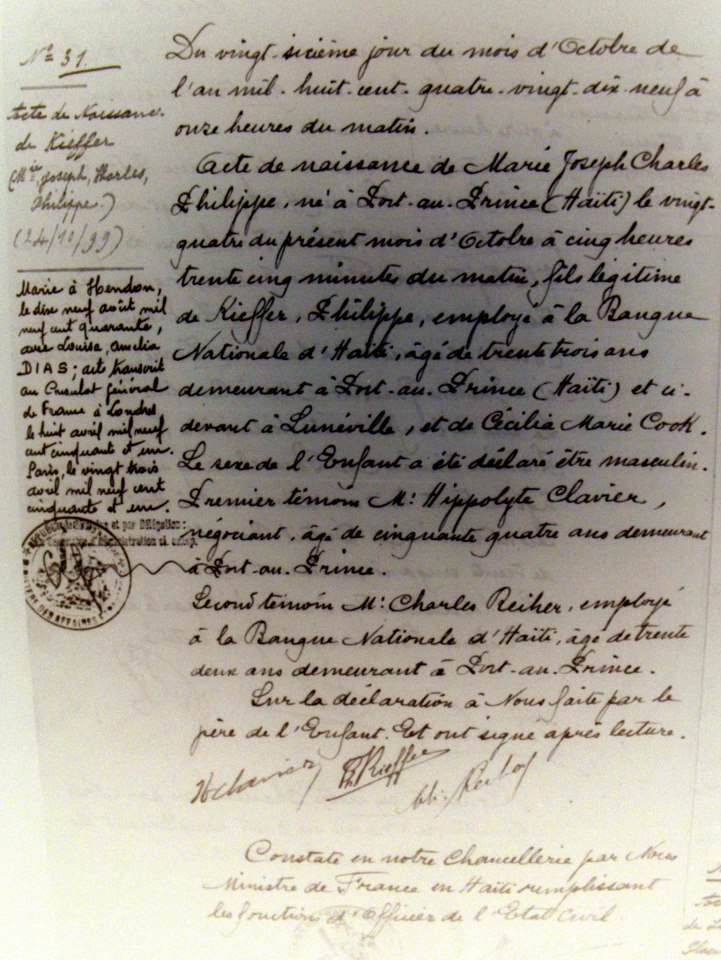 Nº 31.
Acte de Naissance
de Kieffer
(Mie Joseph, Charles,
Philippe.)
(24/10/99)
Marié à Hendon,
le dix neuf août mil
neuf cent quarante,
avec Louise, Amelia
DIAS; acte transcrit
au Consulat Général
de France à Londres
le huit avril mil neuf
cent cinquante et un.
Paris, le vingt trois
avril mil neuf cent
cinquante et un.
et par Délégation:
Du vingt-sixième jour du mois d'Octobre de
l'an mil-huit-cent-quatre-vingt-dix-neuf à
onze heures du matin.
Acte de naissance de Marie Joseph Charles
Philippe, né à Port-au-Prince (Haïti) le vingt-
quatre du présent mois d'Octobre à cinq heures
trente cinq minutes du matin, fils légitime
de Kieffer, Philippe, employé à la Banque
Nationale d'Haïti, âgé de trente trois ans
demeurant à Port-au-Prince (Haïti) et ci-
devant à Lunéville, et de Cécilia Marie Cook.
Le sexe de l'Enfant a été déclaré être masculin.
Premier témoin Mr. Hippolyte Clavier,
négociant, âgé de cinquante quatre ans demeurant
à Port-au-Prince.
Second témoin Mr. Charles Reiher, employé
à la Banque Nationale d'Haïti, âgé de trente
deux ans demeurant à Port-au-Prince.
Sur la déclaration à Nous faite par le
père de l'Enfant. Et ont signé après lecture.
H Clavier Ph Kieffer Ch.
Constaté en notre Chancellerie par Nous
Ministre de France en Haïti remplissant
les fonction d'Officier de l'Etat Civil